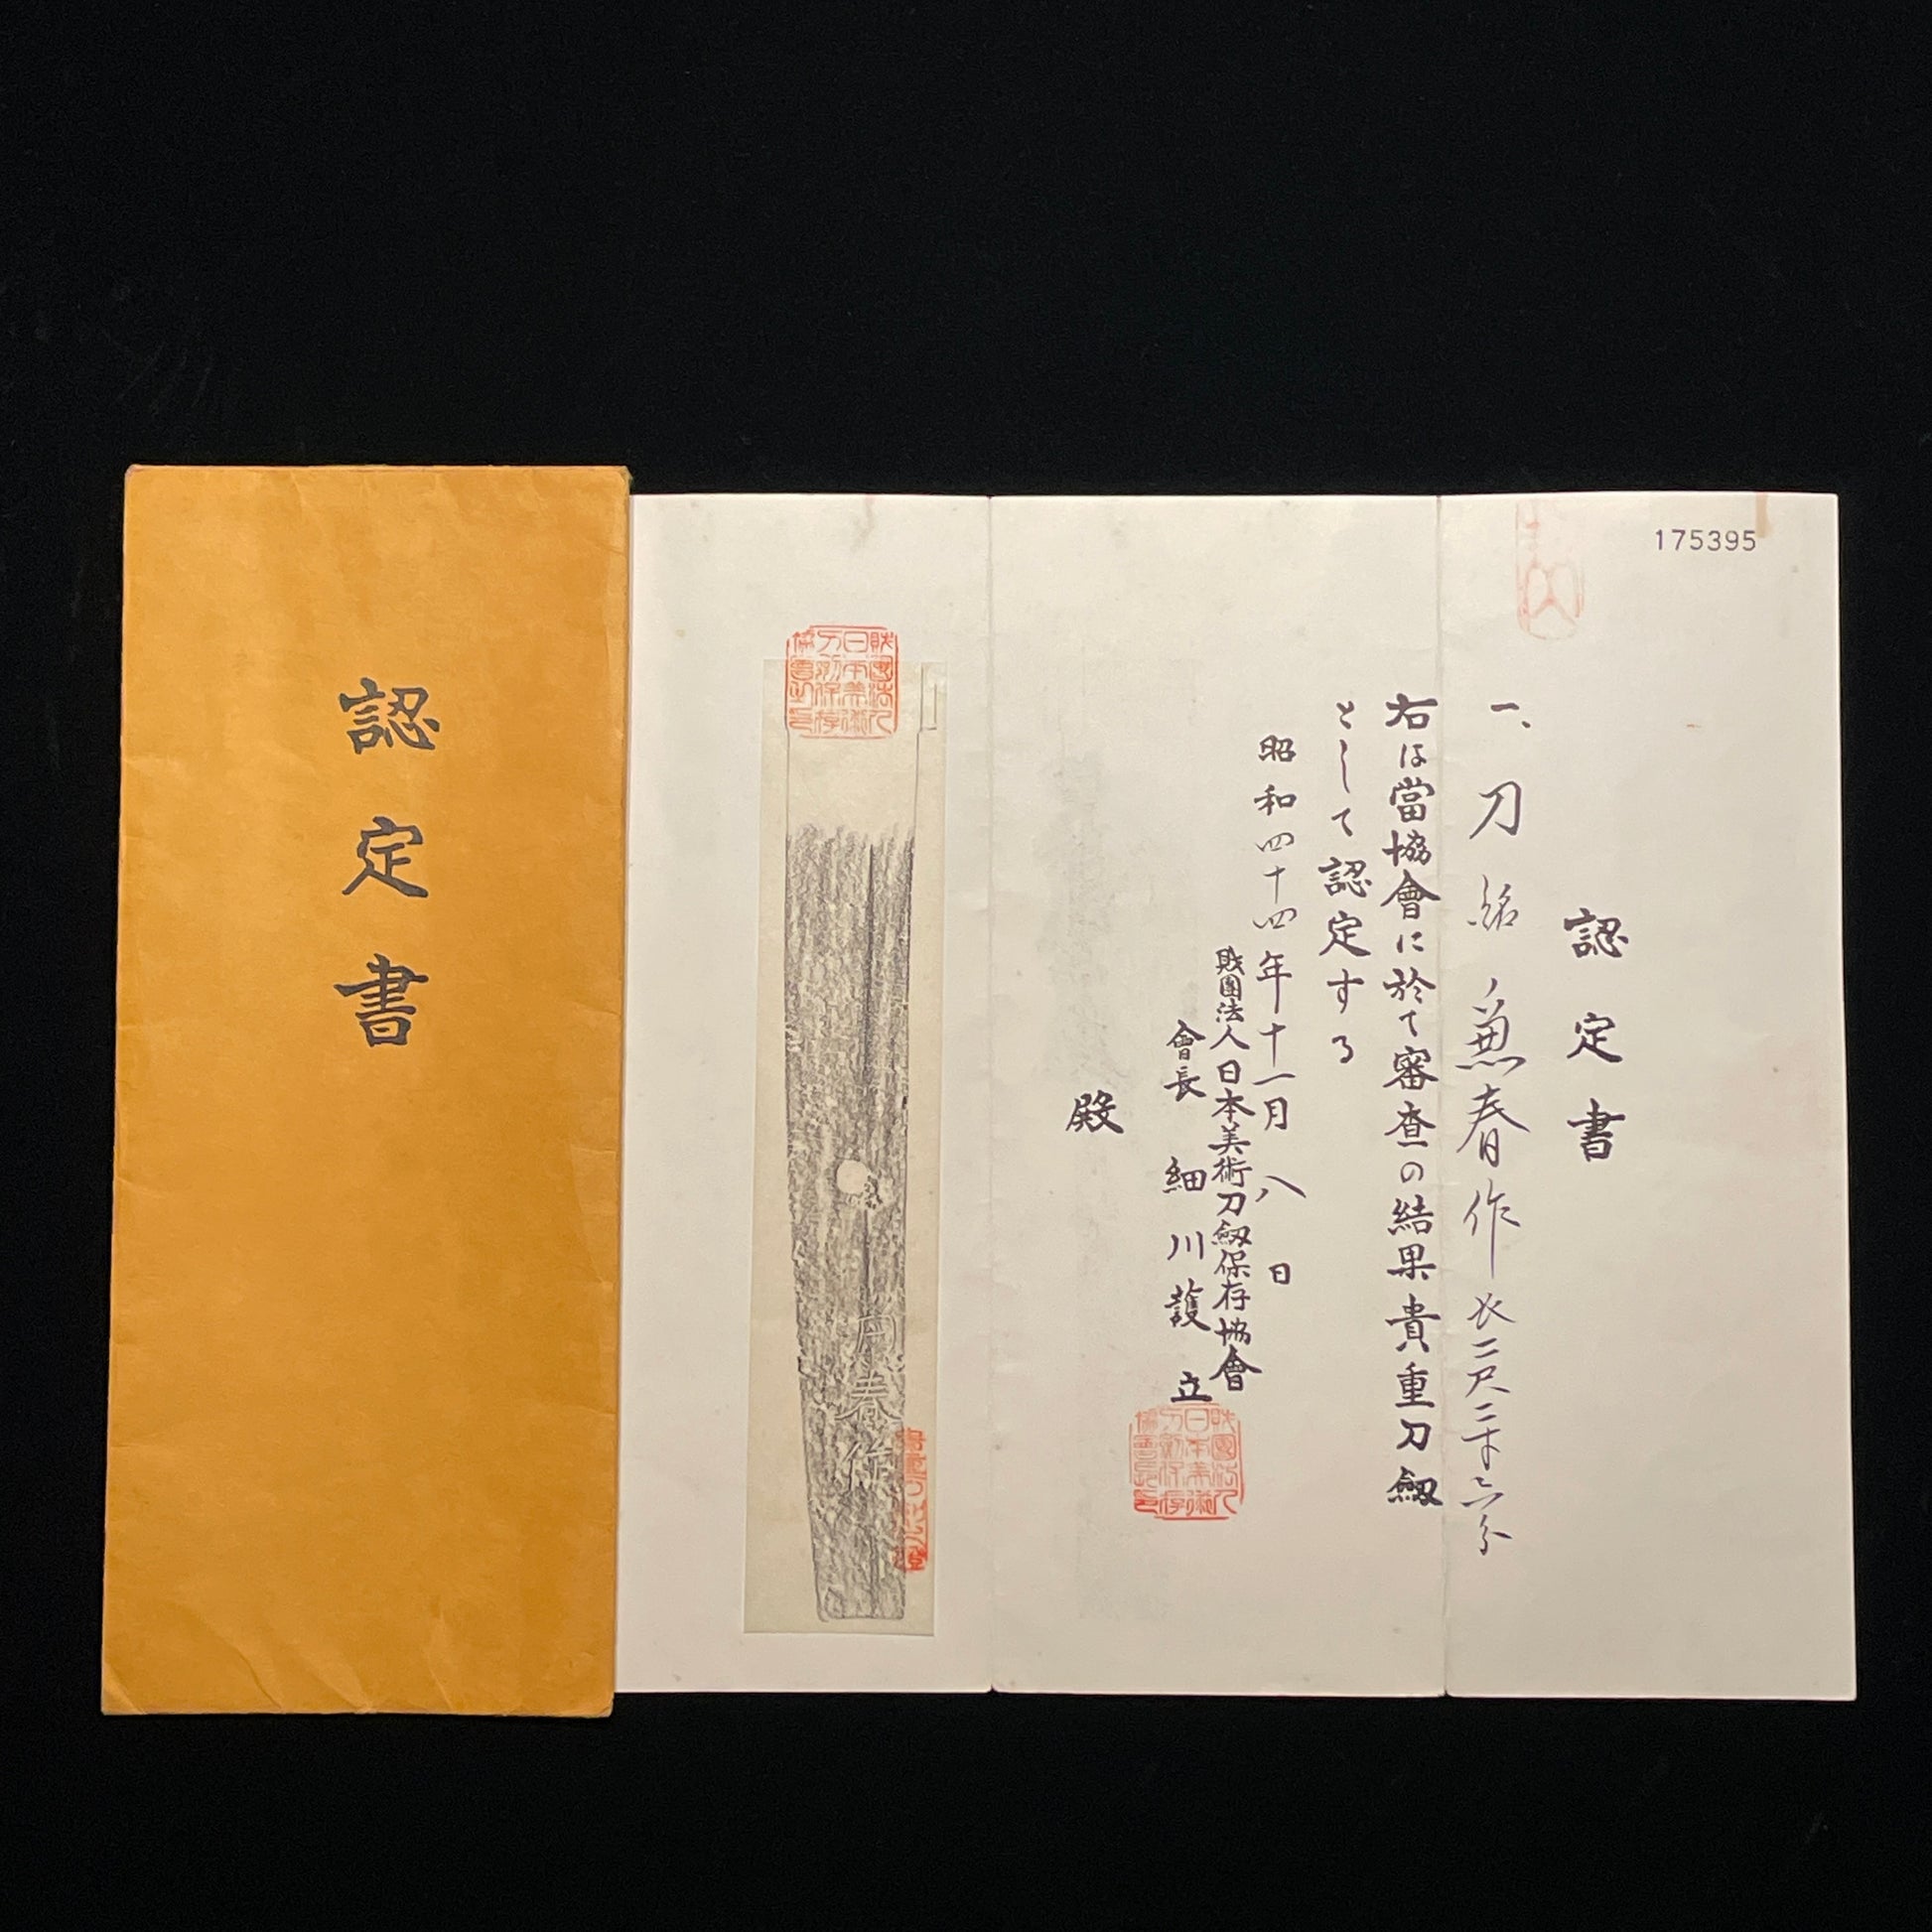 認定書
175395
認定書
一、刀 銘 兼春作 長二尺二寸六分
右は當協會に於て審査の結果貴重刀劔
として認定する
昭和四十四年十一月八日
財團法人日本美術刀劔保存協會
會長 細川護立
殿
財團法人日本美術刀劔保存協會長之印
春作